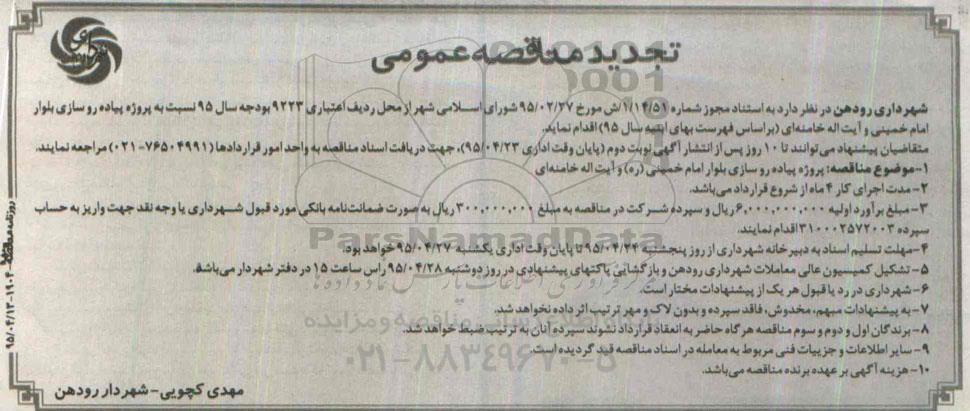 تجدید مناقصه عمومی
شهرداری رودهن در نظر دارد به استناد مجوز شماره ۱/۱۴/۵۱/ش مورخ ۹۵/۰۲/۲۷ شورای اسلامی شهر از محل ردیف اعتباری ۹۲۲۳ بودجه سال ۹۵ نسبت به پروژه پیاده رو سازی بلوار
امام خمینی و آیت اله خامنه‌ای (براساس فهرست بهای ابنیه سال ۹۵) اقدام نماید.
متقاضیان پیشنهاد می‌توانند تا ۱۰ روز پس از انتشار آگهی نوبت دوم (پایان وقت اداری ۹۵/۰۴/۲۳)، جهت دریافت اسناد مناقصه به واحد امور قراردادها (۷۶۵۰۴۹۹۱-۰۲۱) مراجعه نمایند.
۱- موضوع مناقصه: پروژه پیاده رو سازی بلوار امام خمینی (ره) و آیت اله خامنه‌ای
۲- مدت اجرای کار ۴ ماه از شروع قرارداد می‌باشد.
۳- مبلغ برآورد اولیه ۶,۰۰۰,۰۰۰,۰۰۰ ریال و سپرده شرکت در مناقصه به مبلغ ۳۰۰,۰۰۰,۰۰۰ ریال به صورت ضمانت‌نامه بانکی مورد قبول شهرداری یا وجه نقد جهت واریز به حساب
سپرده ۳۱۰۰۰۲۵۷۲۰۰۳ اقدام نمایند.
۴- مهلت تسلیم اسناد به دبیرخانه شهرداری از روز پنجشنبه ۹۵/۰۴/۲۴ تا پایان وقت اداری یکشنبه ۹۵/۰۴/۲۷ خواهد بود.
۵- تشکیل کمیسیون عالی معاملات شهرداری رودهن و بازگشایی پاکتهای پیشنهادی در روز دوشنبه ۹۵/۰۴/۲۸ راس ساعت ۱۵ در دفتر شهردار می‌باشد.
۶- شهرداری در رد یا قبول هر یک از پیشنهادات مختار است.
۷- به پیشنهادات مبهم، مخدوش، فاقد سپرده و بدون لاک و مهر ترتیب اثر داده نخواهد شد.
۸- برندگان اول و دوم و سوم مناقصه هرگاه حاضر به انعقاد قرارداد نشوند سپرده آنان به ترتیب ضبط خواهد شد.
۹- سایر اطلاعات و جزییات فنی مربوط به معامله در اسناد مناقصه قید گردیده است.
۱۰- هزینه آگهی بر عهده برنده مناقصه می‌باشد.
مهدی کچویی - شهردار رودهن
روزنامه مناقصه ۱۹۰۴-۹۵/۰۴/۱۳
ParsNamadData
۰۲۱-۸۸۳۴۹۶۷۰-۵